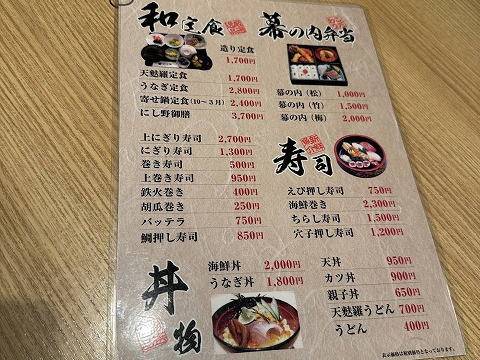 和定食
造り定食
1,700円
天麩羅定食 1,700円
うなぎ定食 2,800円
寄せ鍋定食(10〜3月) 2,400円
にし野御膳 3,700円
上にぎり寿司 2,700円
にぎり寿司 1,300円
巻き寿司 500円
上巻き寿司 950円
鉄火巻き 400円
胡瓜巻き 250円
バッテラ 750円
鯛押し寿司 850円
幕の内弁当
幕の内(松) 1,000円
幕の内(竹) 1,500円
幕の内(梅) 2,000円
寿司
えび押し寿司 750円
海鮮巻き 2,300円
ちらし寿司 1,500円
穴子押し寿司 1,200円
丼物
海鮮丼 2,000円
うなぎ丼 1,800円
天丼 950円
カツ丼 900円
親子丼 650円
天麩羅うどん 700円
うどん 400円
表示価格は税別価格となっております。